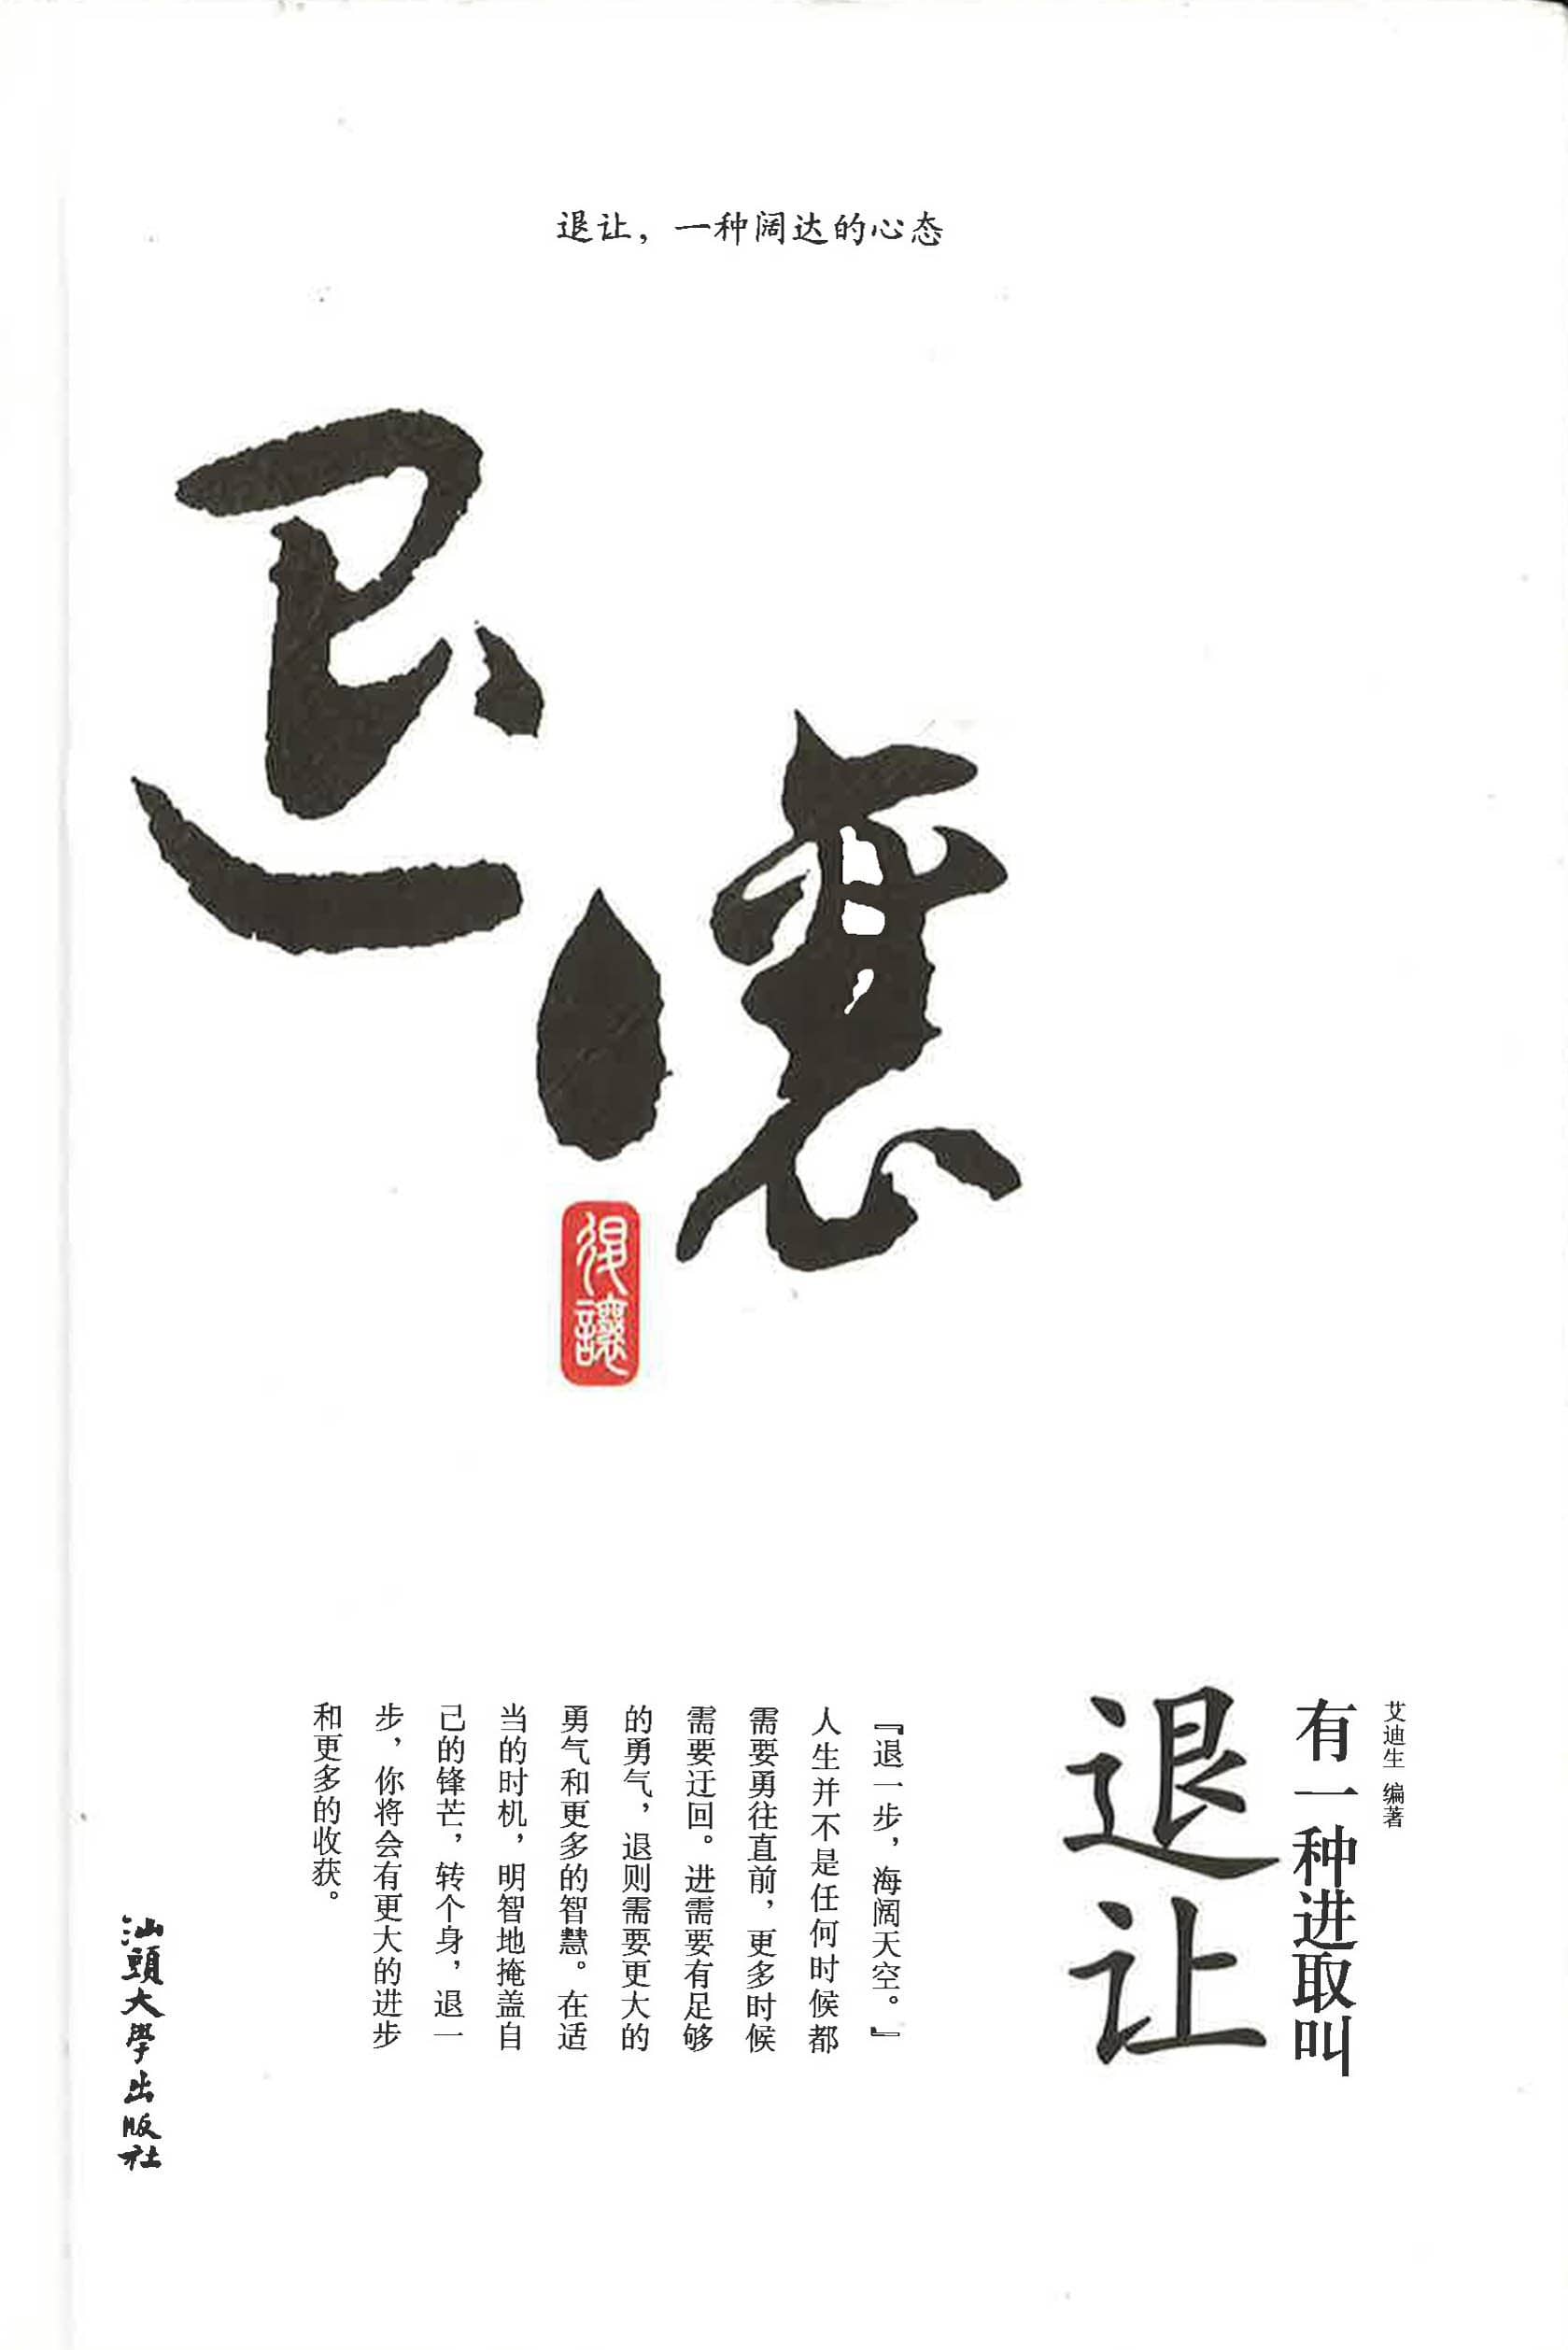 退让，一种阔达的心态
退讓
退讓
艾迪生 编著
有一种进取叫
退让
『退一步，海阔天空。』
人生并不是任何时候都
需要勇往直前，更多时候
需要迂回。进需要有足够
的勇气，退则需要更大的
勇气和更多的智慧。在适
当的时机，明智地掩盖自
己的锋芒，转个身，退一
步，你将会有更大的进步
和更多的收获。
汕頭大學出版社